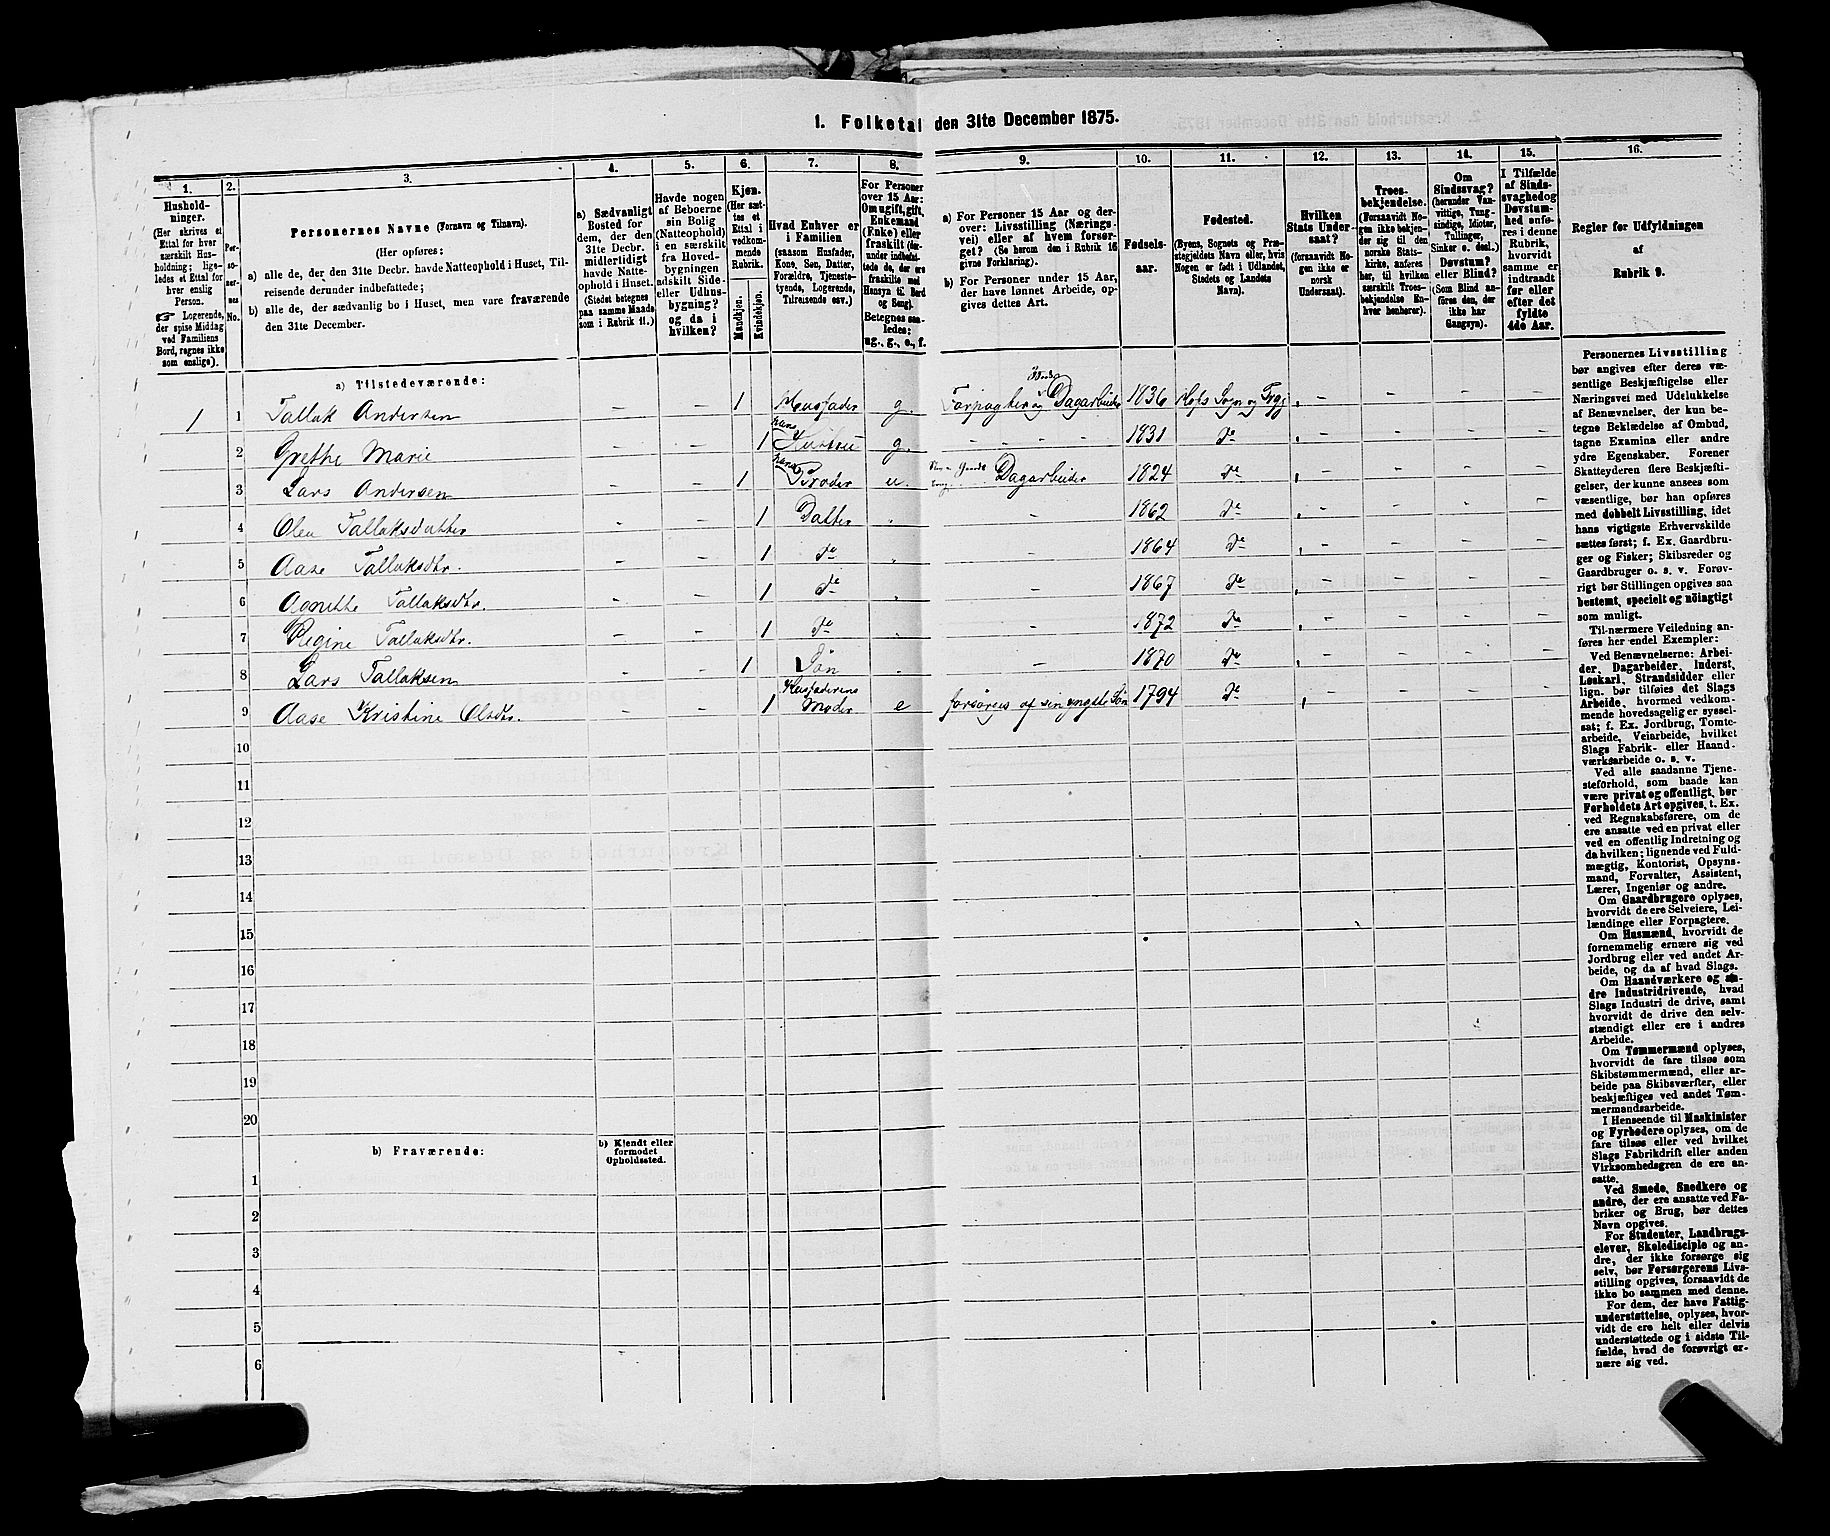 1. Folketal den 31te December 1875.
1.
2.
3.
4.
5.
6.
7.
8.
9.
10.
11.
12.
13.
14.
15.
16.
Hushold-
ninger.
(Her skrives et
Ettal for hver
særskilt Hus-
holdning; lige-
ledes et Ettal for
hver enslig
Person.
☞ Logerende,
der spise Middag
ved Familiens
Bord, regnes ikke
som enslige).
Per-
so-
ner-
nes
No.
Personernes Navne (Fornavn og Tilnavn).
(Her opføres:
a) alle de, der den 31te Decbr. havde Natteophold i Huset, Til-
reisende derunder indbefattede;
b) alle de, der sædvanlig bo i Huset, men vare fraværende
den 31te December.
a) Sædvanligt
Bosted for
dem, der den
31te Decbr.
midlertidigt
havde Natte-
ophold i Huset.
(Stedet betegnes
paa samme Maade
som i Rubrik 11.)
Havde nogen
af Beboerne
sin Bolig
(Natteophold)
i en særskilt
fra Hoved-
bygningen
adskilt Side-
eller Udhus-
bygning?
og da i
hvilken?
Kjøn.
(Her sæt-
tes et
Ettal i
vedkom-
mende
Rubrik.
Mandkjøn.
Kvindekjøn.
Hvad Enhver er
i Familien
(saasom Husfader,
Kone, Søn, Datter,
Forældre, Tjeneste-
tyende, Logerende,
Tilreisende osv.)
For Personer
over 15 Aar:
Om ugift, gift,
Enkemand
(Enke) eller
fraskilt (der-
under indbefat-
tede de, der ere
fraskilte med
Hensyn til Bord
og Seng).
Betegnes saa-
ledes:
ug., g., e., f.
a) For Personer 15 Aar og der-
over: Livsstilling (Nærings-
vei) eller af hvem forsør-
get? (Se herom den i Rubrik 16
givne Forklaring).
b) For Personer under 15 Aar,
der have lønnet Arbeide, op-
gives dettes Art.
Fødsels-
aar.
Fødested.
(Byens, Sognets og Præ-
stegjeldets Navn eller, hvis
Nogen er født i Udlandet,
Stedets og Landets
Navn).
Hvilken
Stats Under-
saat?
(forsaavidt No-
gen ikke er
norsk
Undersaat).
Troes-
bekjendelse.
(Forsaavidt No-
gen ikke bekjen-
der sig til den
norske Stats-
kirke, anføres
her, til hvilken
særskilt Troes-
bekjendelse En-
hver henhører).
Om
Sindssvag?
(herunder Van-
vittige, Tung-
sindige, Idioter,
Tullinger,
Sinker o. desl.)
Døvstum?
eller Blind?
(Som Blind an-
føres den, der
ikke har
Gangsyn).
I Tilfælde
af Sinds-
svaghed og
Døvstum-
hed anfø-
res i denne
Rubrik,
hvorvidt
samme er
indtraadt
før eller
efter det
fyldte
4de Aar.
Regler for Udfyldningen
af
Rubrik 9.
a) Tilstedeværende:
1 1 Tallak Andersen – – 1 Husfader g. Forpagter og Dagarbeider 1836 – – –
2 Grethe Marie 1 hans Hustru g. – 1831 do – – –
3 Lars Andersen – – 1 hans Broder u. Dagarbeider 1824 do – – –
4 Olea Tallaksdatter – – 1 Datter – 1862 do – – –
5 Aase Tallaksdtr. – – 1 do – 1864 do – – –
6 Agnethe Tallaksdtr. – – 1 do – 1867 do – – –
7 Regine Tallaksdtr. – – 1 do 1872 do – – –
8 Lars Tallaksen – – 1 Søn – 1870 do – – –
9 Aase Kristine Olsdtr. – – 1 Husfaderens Moder e forsørges af sin yngste Søn 1794 do
10
11
12
13
14
15
16
17
18
19
20
b) Fraværende:
b) Kjendt eller
formodet
Opholdssted.
1
2
3
4
5
6
Personernes Livsstilling
bør angives efter deres væ-
sentlige Beskjæftigelse eller
Næringsvei med Udelukkelse
af Benævnelser, der kun be-
tegne Beklædelse af Ombud,
tagne Examina eller andre
ydre Egenskaber. Forener
Skatteyderen flere Beskjæfti-
gelser, der kunne ansees som
væsentlige, bør han opføres
med dobbelt Livsstilling, idet
hans vigtigste Erhvervskilde
sættes først; f. Ex. Gaardbru-
ger og Fisker; Skibsreder og
Gaardbruger o. s. v. Forøv-
rigt bør Stillingen opgives saa
bestemt, specielt og nöiagtigt
som muligt.
Til nærmere Veiledning an-
føres her endel Exempler:
Ved Benævnelserne: Arbei-
der, Dagarbeider, Inderst,
Løskarl, Strandsidder eller
lign. bør tilføies det Slags
Arbeide, hvormed vedkom-
mende hovedsagelig er syssel-
sat; f. Ex. Jordbrug, Tomte-
arbeide, Veiarbeide, hvilket
Slags Fabrik- eller Haand-
værksarbeide o. s. v.
Ved alle saadanne Tjene-
steforhold, som baade kan
være privat og offentligt, bør
Forholdets Art opgives, t. Ex.
ved Regnskabsførere, om de
ere ansatte ved en privat eller
ved en offentlig Indretning og
da hvilken; lignende ved Fuld-
mægtig, Kontorist, Opsyns-
mand, Forvalter, Assistent,
Lærer, Ingeniør og andre.
Om Gaardbrugere oplyses,
hvorvidt de ere Selveiere, Lei-
lændinge eller Forpagtere.
Om Husmænd, hvorvidt de
fornemmelig ernære sig ved
Jordbrug eller ved andet Ar-
beide, og da af hvad Slags.
Om Haandværkere og an-
dre Industridrivende, hvad
Slags Industri de drive, samt
hvorvidt de drive den selv-
stændigt eller ere i andres
Arbeide.
Om Tømmermænd oplyses,
hvorvidt de fare tilsøs som
Skibstømmermænd, eller ar-
beide paa Skibsværfter, eller
beskjæftiges ved andet Tøm-
mermandsarbeide.
I Henseende til Maskinister
og Fyrbødere oplyses, om de
fare tilsøs eller ved hvilket
Slags Fabrikdrift eller anden
Virksomhedsgren de ere an-
satte.
Ved Smede, Snedkere og
andre, der ere ansatte ved Fa-
briker og Brug, bør dettes
Navn opgives.
For Studenter, Landbrugs-
elever, Skoledisciple og an-
dre, der ikke forsørge sig
selv, bør Forsørgerens Livs-
stilling opgives, forsaavidt de
ikke bo sammen med denne.
For dem, der have Fattig-
understøttelse, oplyses, hvor-
vidt de ere helt eller delvis
understøttede og i sidste Til-
fælde, hvad de forøvrigt er-
nære sig ved.